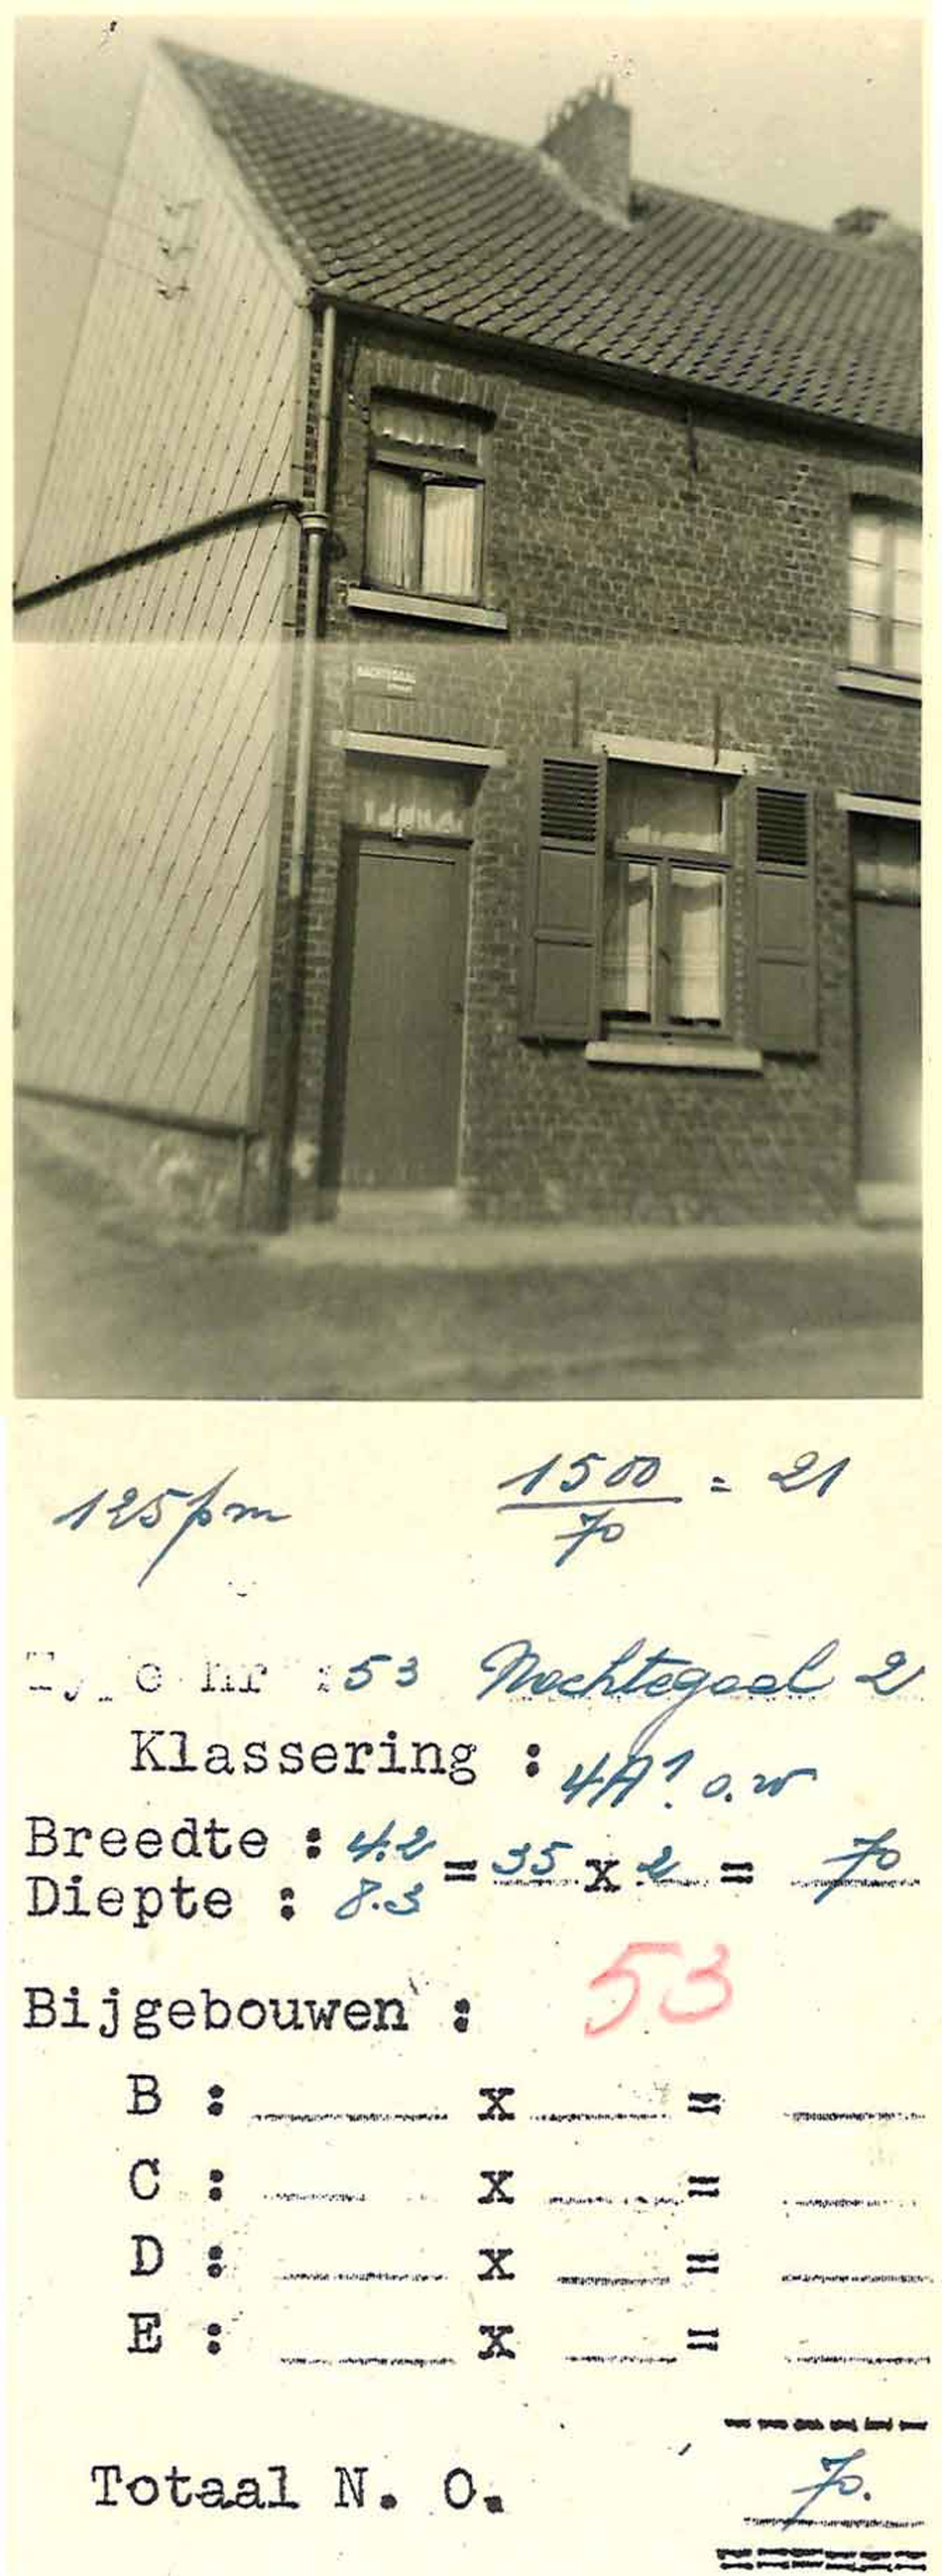 NACHTEGAAL
STRAAT
125 pm
1500 = 21
70
Type nr : 53 Nachtegaal 2
Klassering : 4A? o.w
Breedte : 4.2 = 35 x 2 = 70
Diepte : 8.3
Bijgebouwen : 53
B : x =
C : x =
D : x =
E : x =
Totaal N. O. 70.